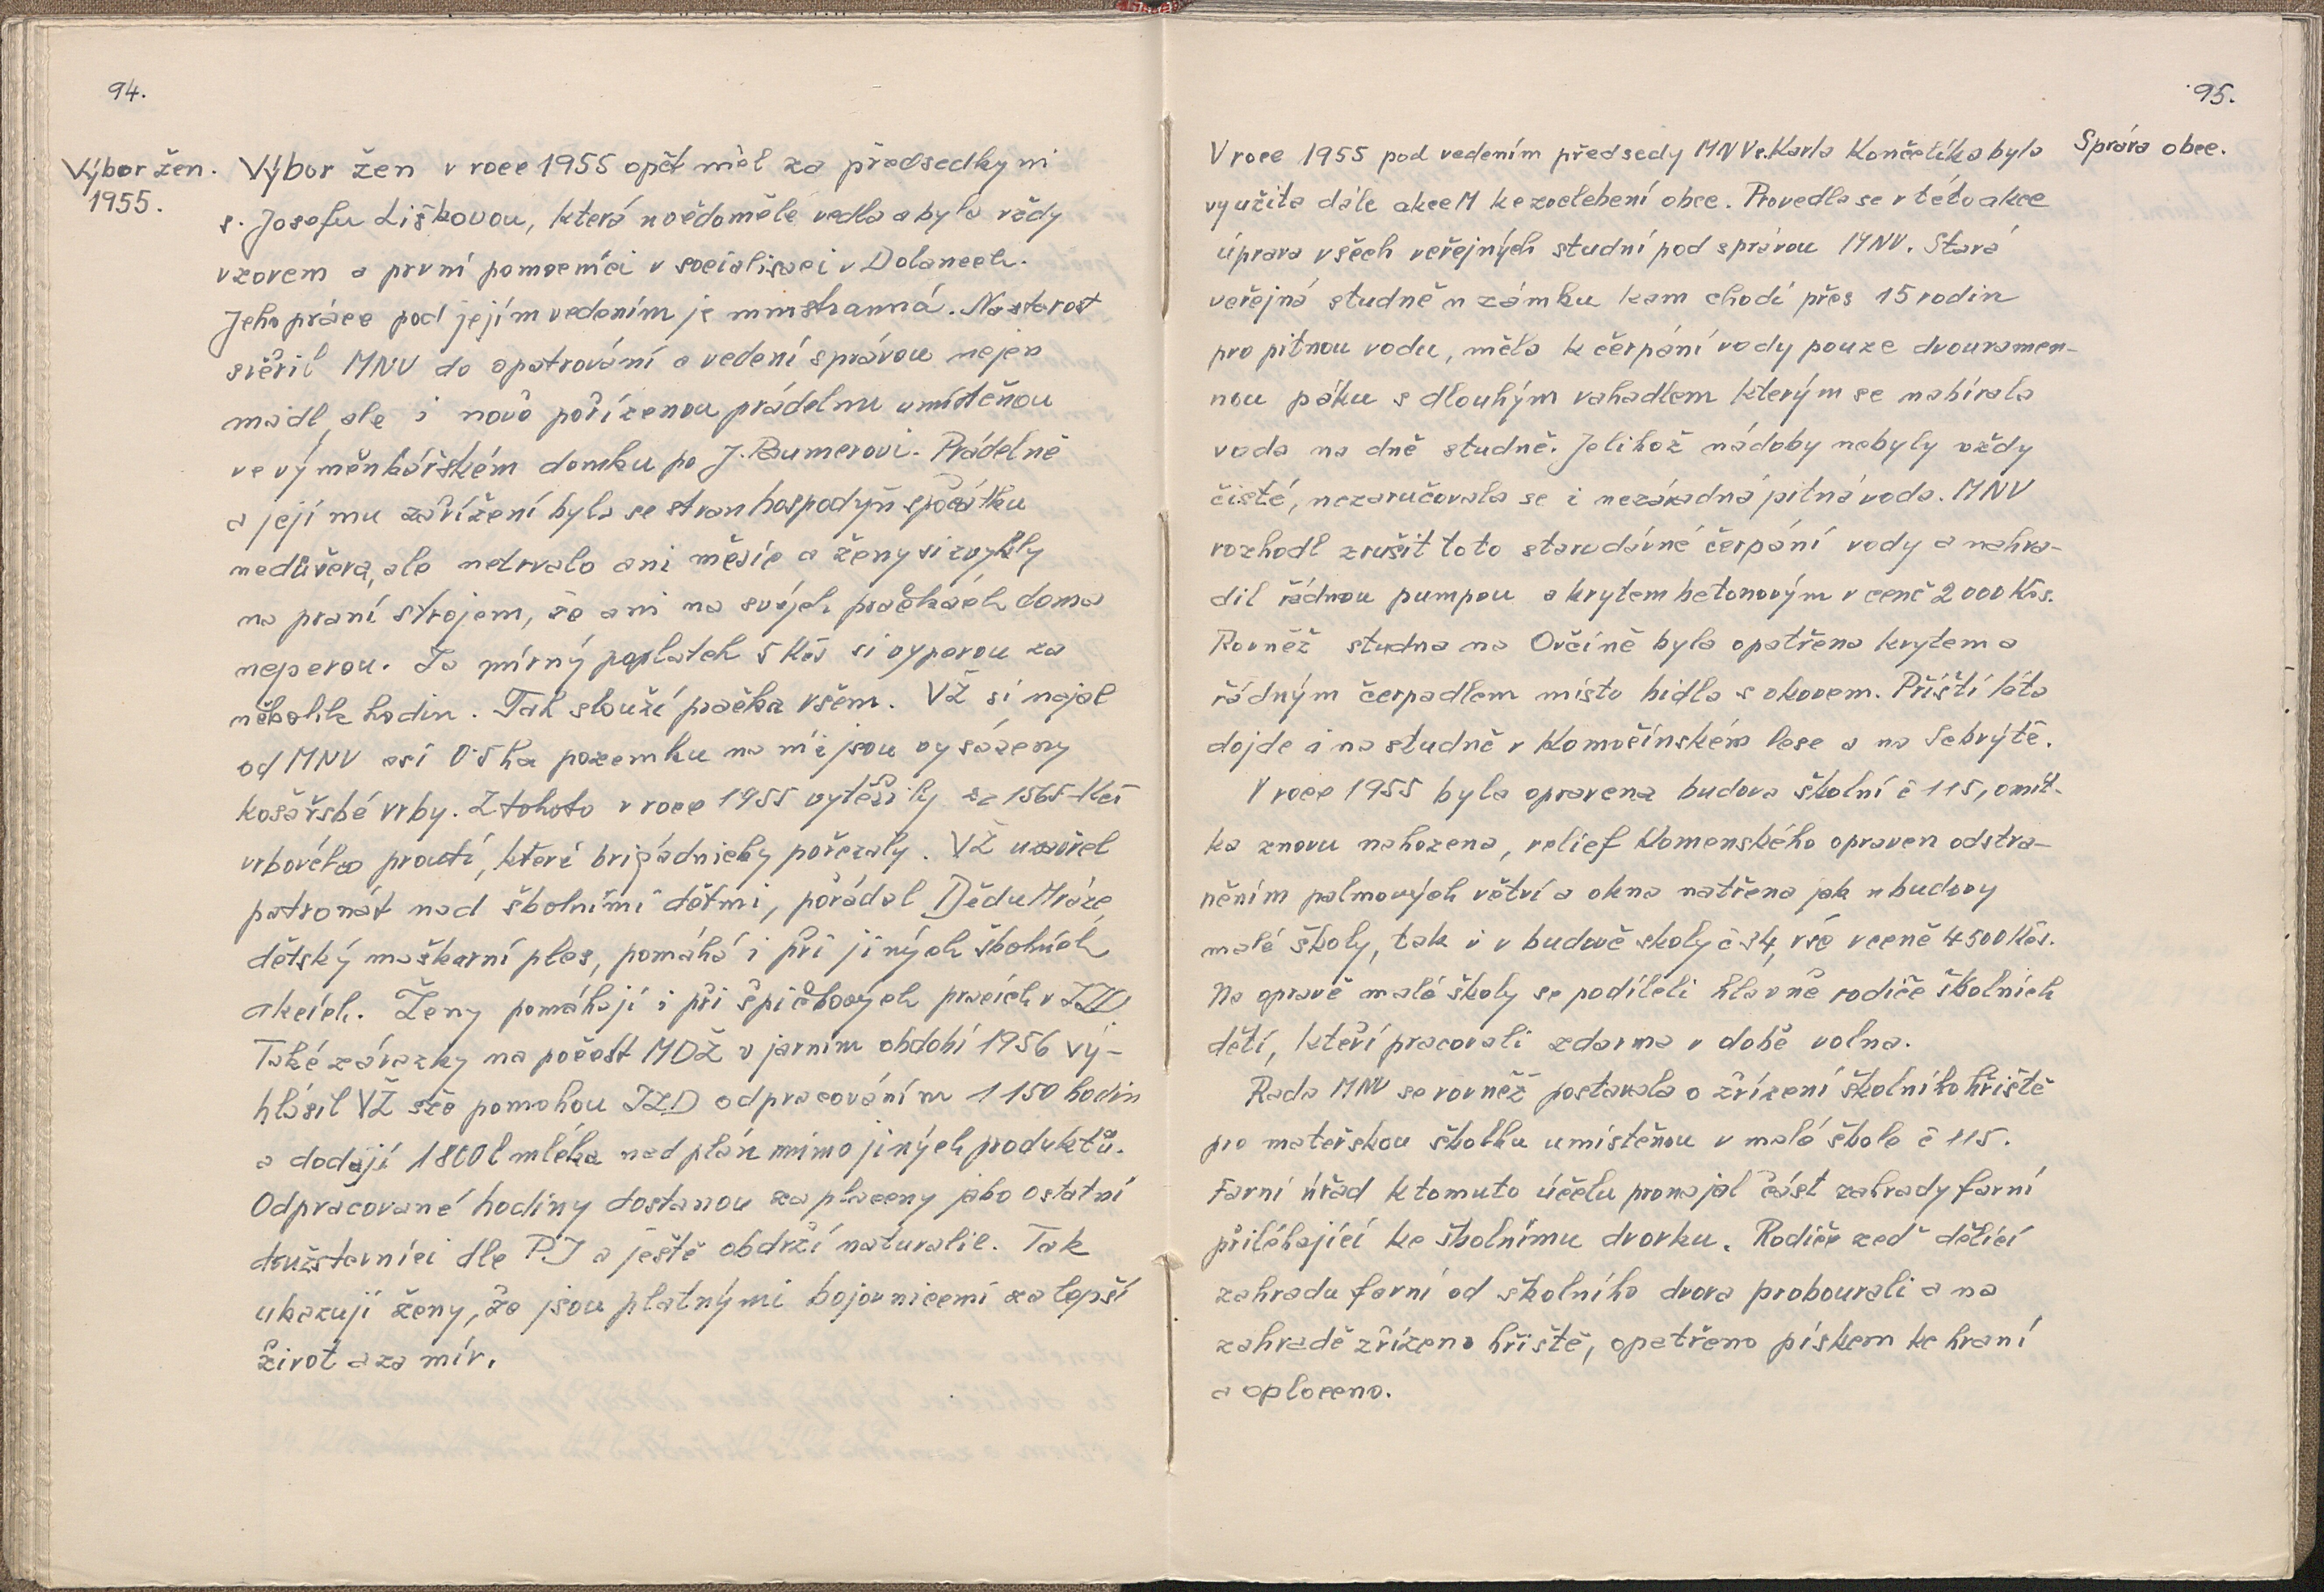 94.
Výbor žen.
1955.
Výbor žen v roce 1955 opět měl za předsedkyni
s. Josefu Liškovou, která uvědoměle vedla a byla vždy
vzorem a první pomocnicí v socialisaci v Dolanech.
Jeho práce pod jejím vedením je mnostranná. Na starost
svěřil MNV do opatrování a vedení správou nejen
mádl, ale i nově pořízenou prádelnu umístěnou
ve výměnkářském domku po J. Baumerovi. Prádelně
a jejímu zařížení byla se stran hospodyň spočátku
nedůvěra, ale netrvalo ani měsíc a ženy si zvykly
na praní strojem, že ani na svých pračkách doma
neperou. Za mírný poplatek 5 Kčs si vyperou za
několik hodin. Tak slouží pračka všem. VŽ si najal
od MNV asi 0·5 ha pozemku na níž jsou vysázeny
košařské vrby. Z tohoto v roce 1955 vytěžily za 1565 Kčs
vrbového proutí, které brigádnicky pořezaly. VŽ uzavřel
patronát nad školními dětmi, pořádal Dědu Mráze,
dětský maškarní ples, pomáhá i při jiných školních
akcích. Ženy pomáhají i při špičkových pracích v JZD
Také závazky na počest MDŽ v jarním období 1956 vy-
hlásil VŽ sže pomohou JZD odpracováním 1150 hodin
a dodají 1800 l mléka nad plán mimo jiných produktů.
Odpracované hodiny dostanou zaplaceny jako ostatní
družstevníci dle P.J a ještě obdrží naturalie. Tak
ukazují ženy, že jsou platnými bojovnicemi za lepší
život a za mír.
95.
Správa obce.
V roce 1955 pod vedením předsedy MNV s. Karla Končelíka byla
využita dále akce M ke zvelebení obce. Provedla se v této akce
úprava všech veřejných studní pod správou MNV. Stará
veřejná studně u zámku kam chodí přes 15 rodin
pro pitnou vodu, měla k čerpání vody pouze dvouramen-
nou páku s dlouhým vahadlem kterým se nabírala
voda na dně studně. Jelikož nádoby nebyly vždy
čisté, nezaručovala se i nezávadná pitná voda. MNV
rozhodl zrušit toto starodávné čerpání vody a nahra-
dil řádnou pumpou a krytem betonovým v ceně 2000 Kčs.
Rovněž studna na Ovčíně byla opatřena krytem a
řádným čerpadlem místo bidla s okovem. Příští léta
dojde i na studně v Komočínském lese a na Sebrýtě.
V roce 1955 byla opravena budova školní č 115, omít-
ka znovu nahozena, relief Komenského opraven odstra-
něním palmových větví a okna natřena jak u budovy
malé školy, tak i v budově skoly č 34, vše vceně 4500 Kčs.
Na opravě malé školy se podíleli hlavně rodiče školních
dětí, kteří pracovali zdarma v době volna.
Rada MNV se rovněž postarala o zřízení školního hřiště
pro mateřskou školku umístěnou v malé škole č 115.
Farní úřad k tomuto účelu pronajal část zahrady farní
přiléhající ke školnímu dvorku. Rodiče zeď dělící
zahradu farní od školního dvora probourali a na
zahradě zřízeno hřiště, opatřeno pískem ke hraní
a oploceno.